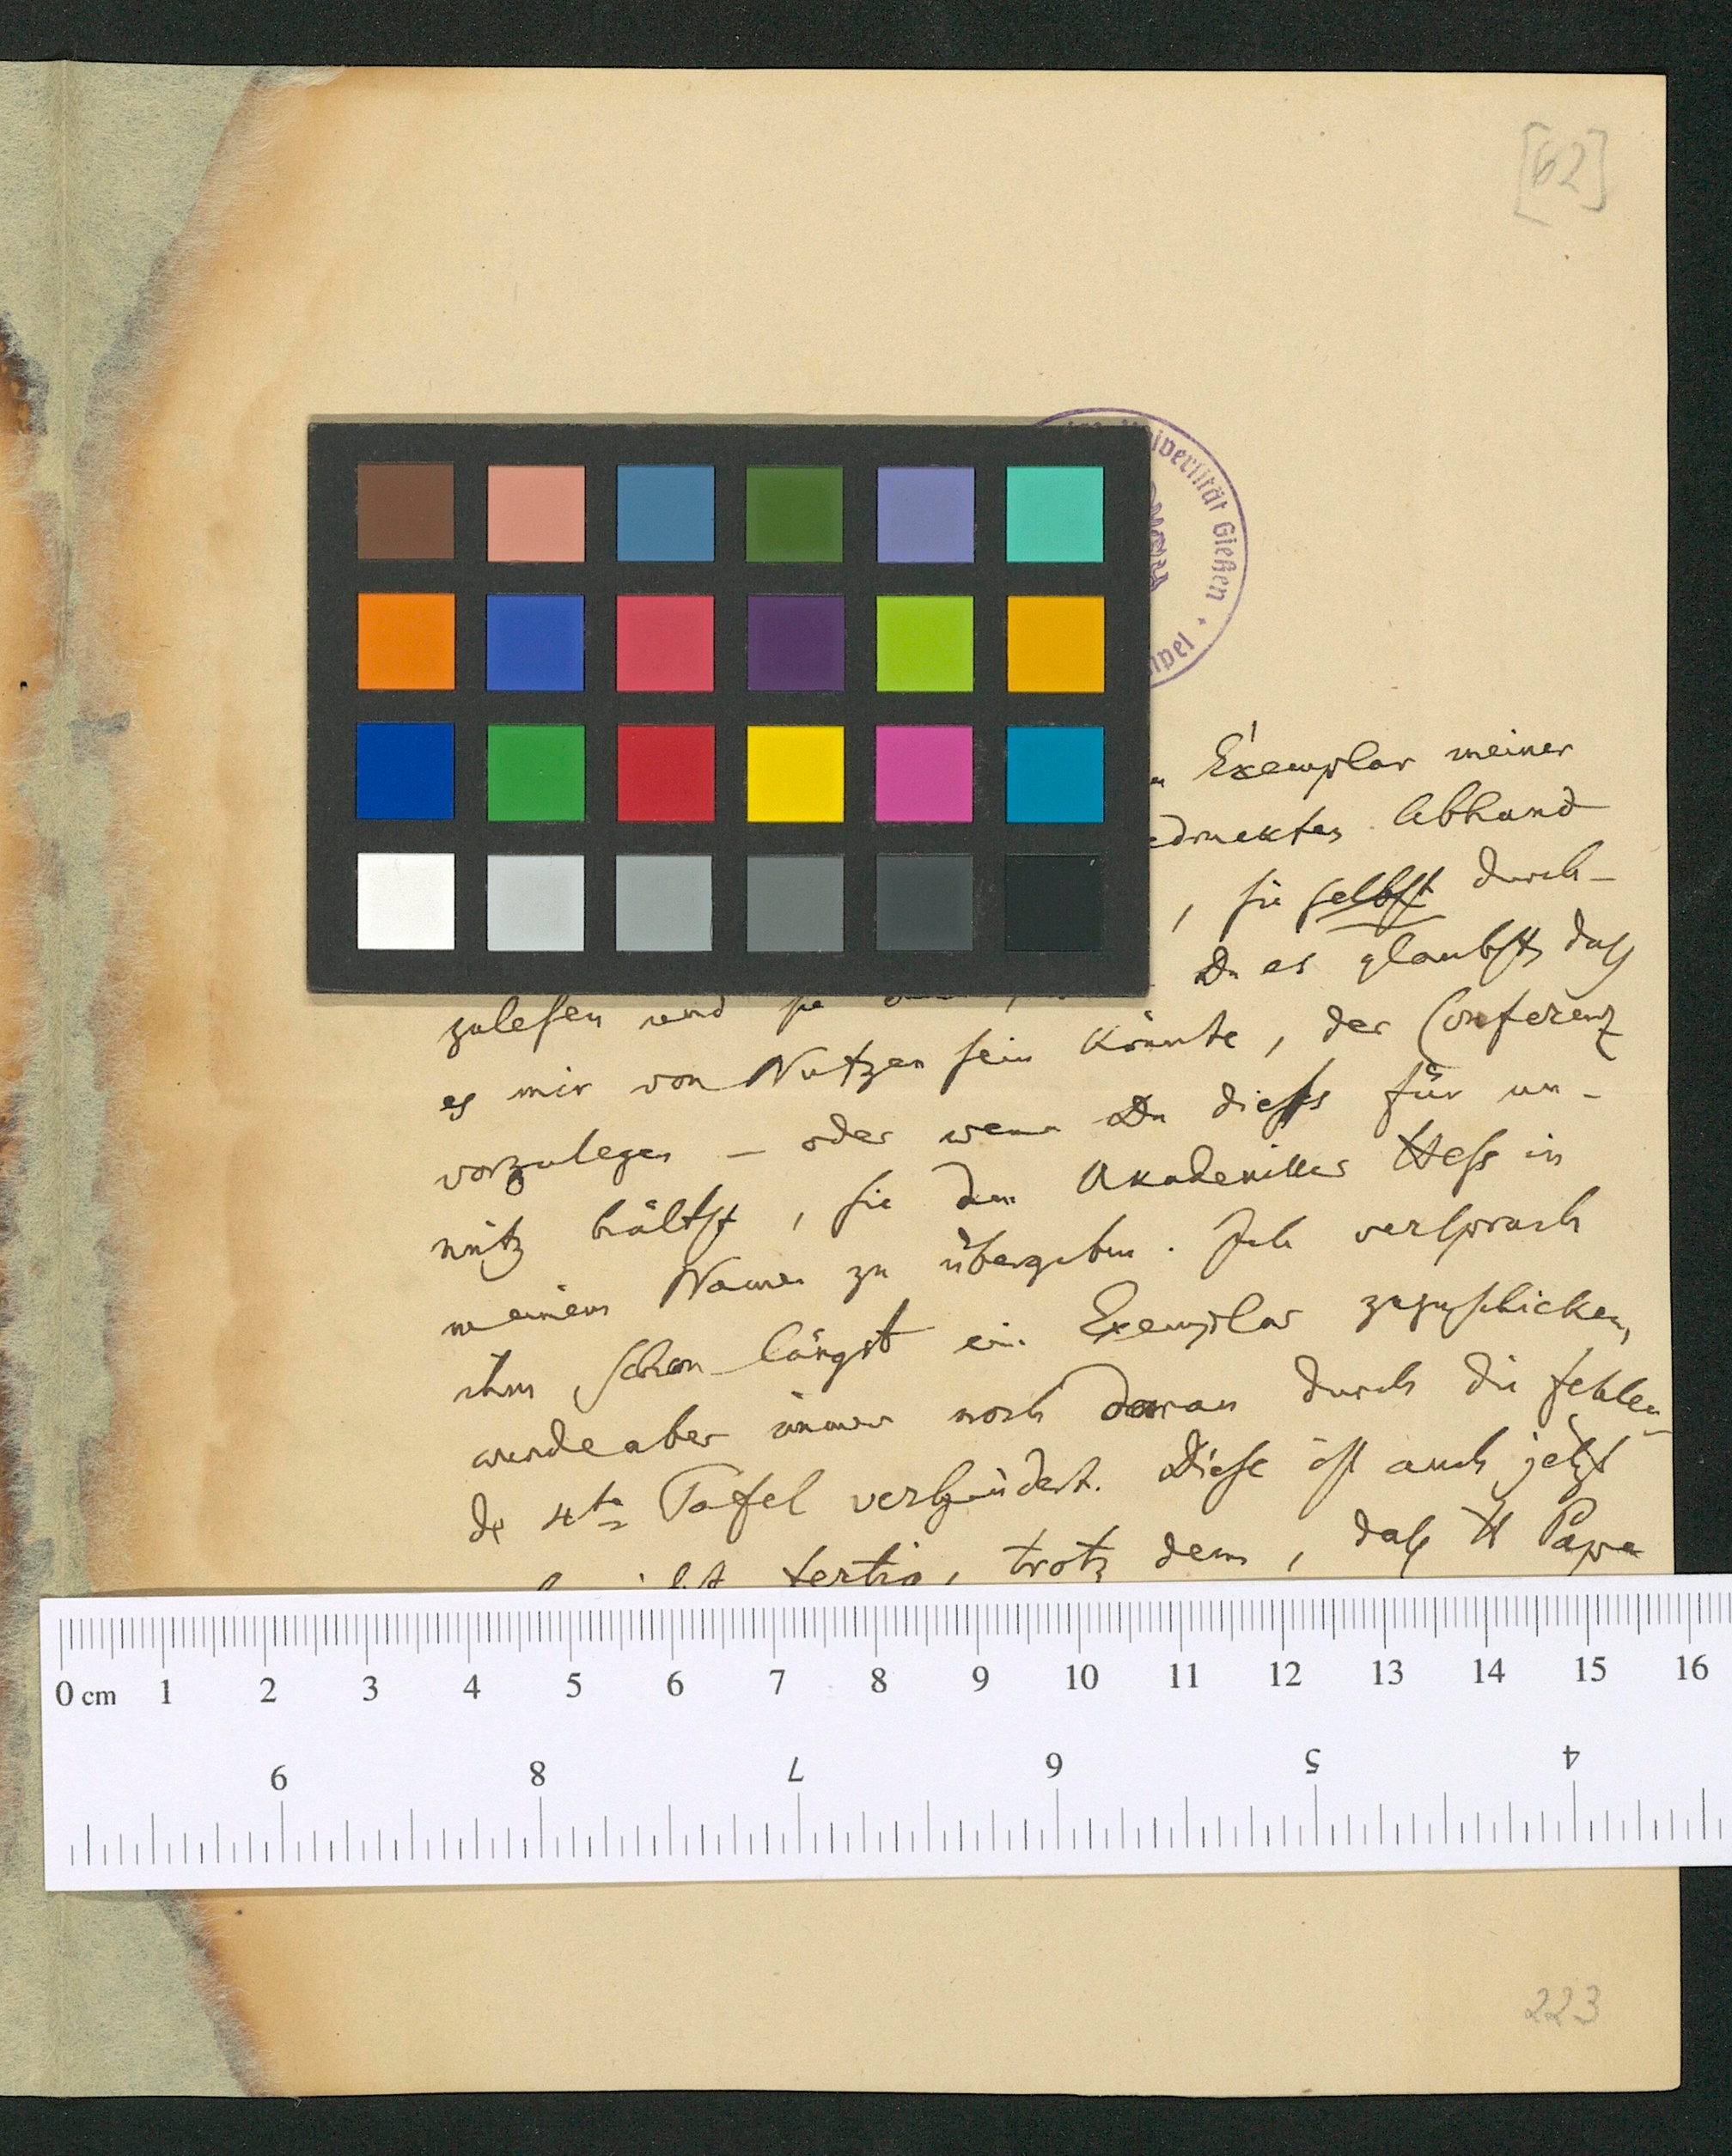 [62]
Universität Gießen
Exemplar meiner
Abhand
, sie selbst durch-
zulesen und Du es glaubst, daß
es mir von Nutzen sein könnte, der Conferenz
vorzulegen – oder wenn Du diess für un-
nütz hältst, sie dem Akademiker Hess in
meinem Namen zu übergeben. Ich versprach
ihm schon längst ein Exemplar zuzuschicken,
wurde aber immer noch daran durch die fehlen
de 4te Tafel verhindert. Diese ist auch jetzt
fertig, trotz dem, daß H Pape
0 cm 1 2 3 4 5 6 7 8 9 10 11 12 13 14 15 16
9 8 7 6 5 4
223